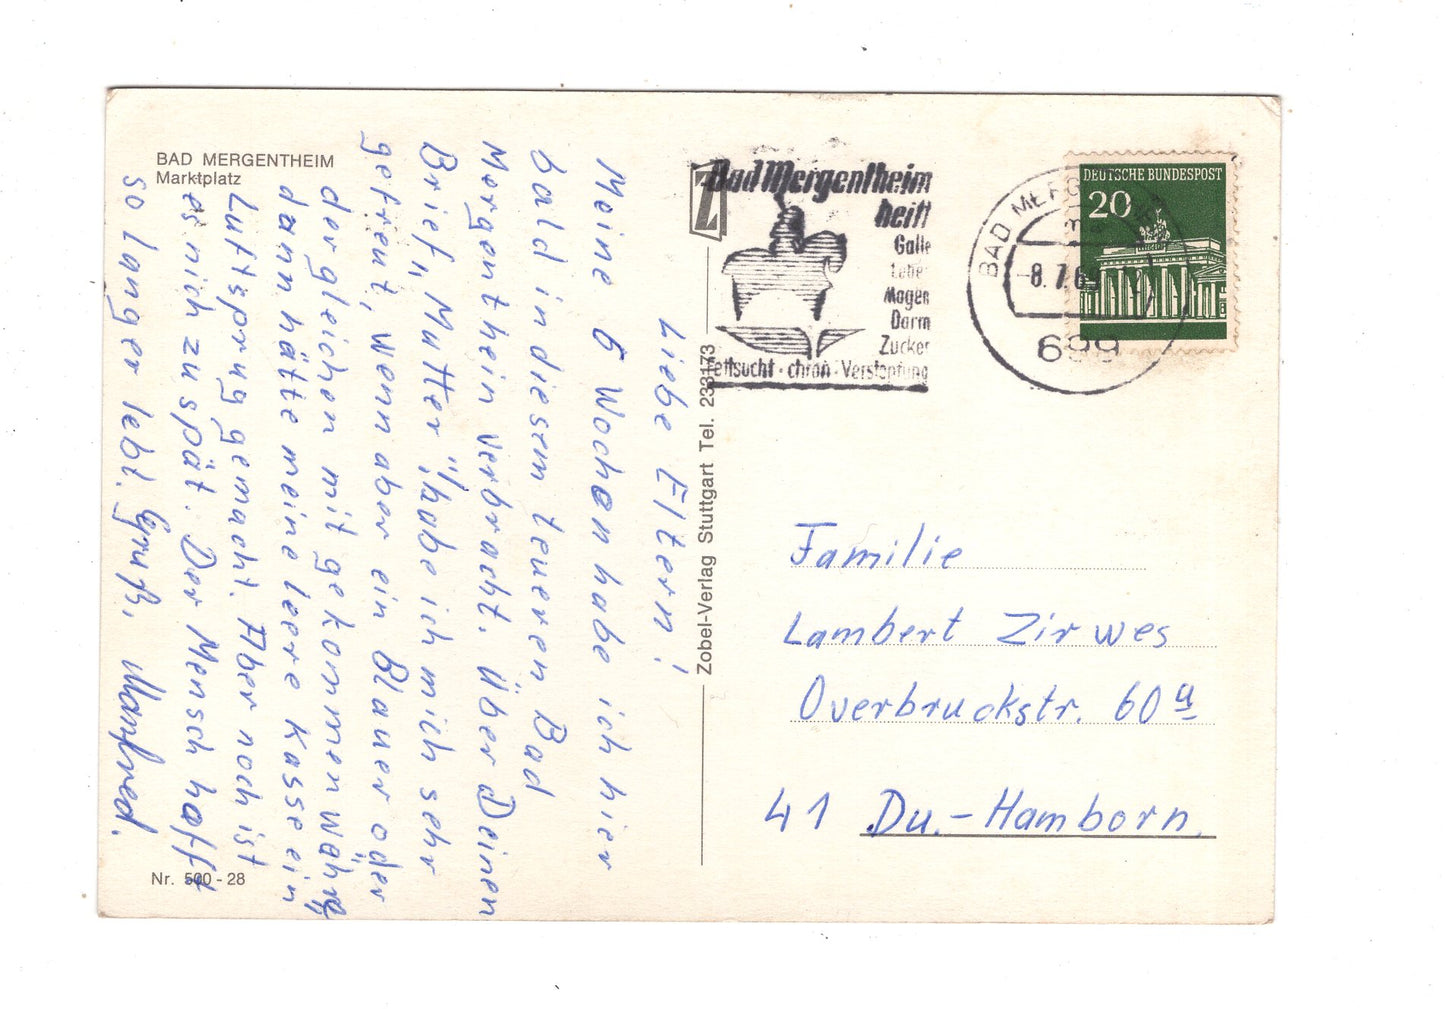 BAD MERGENTHEIM
Marktplatz
Liebe Eltern!
Meine 6 Wochen habe ich hier
bald in diesem teueren Bad
Mergentheim verbracht. Über Deinen
Brief, „Mutter“, habe ich mich sehr
gefreut, wenn aber ein Blauer oder
dergleichen mit gekommen währe,
dann hätte meine leere Kasse ein
Luftsprug gemacht. Aber noch ist
es nich zu spät. Der Mensch hofft
so langer lebt. Gruß, Manfred.
Nr. 500 - 28
Z
Zobel-Verlag Stuttgart Tel. 233173
Bad Mergentheim
heilt
Galle
Leber
Magen
Darm
Zucker
Fettsucht · chron · Verstopfung
BAD MERG
8.7.69
699
DEUTSCHE BUNDESPOST
20
Familie
Lambert Zirwes
Overbruckstr. 60a
41 Du.-Hamborn